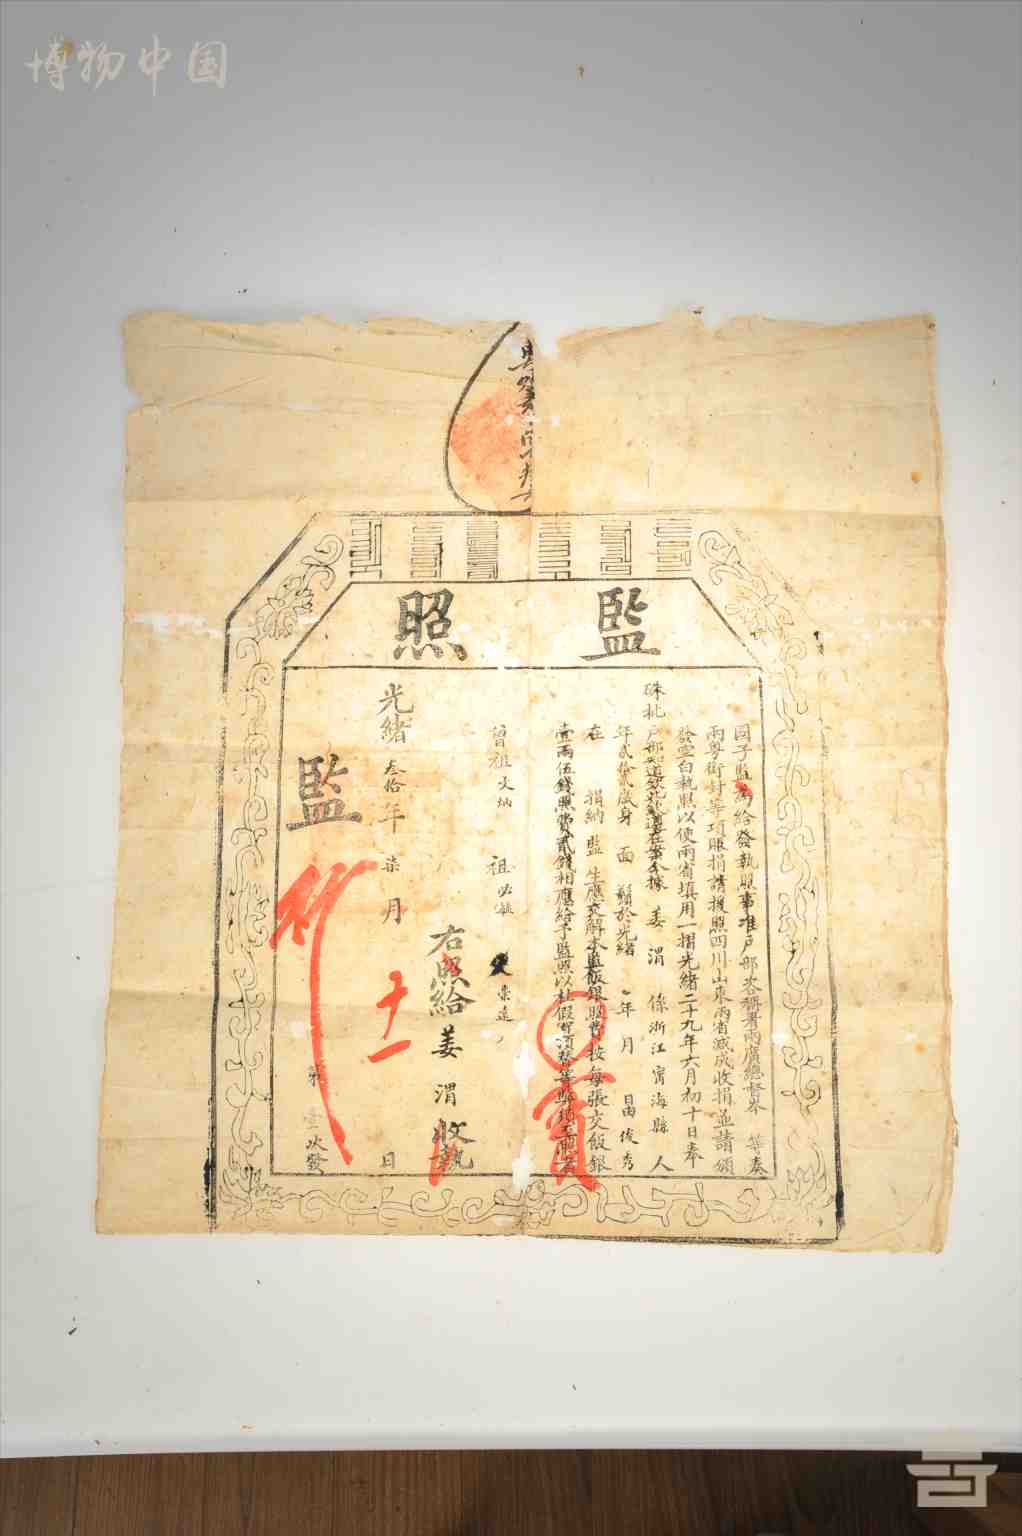 博物中国
監照
國子監為給發執照事准戶部咨稱署兩廣總督岑 等奏
兩粵衛封等項賑捐請援照四川山東兩省減成收捐並請頒
發空白執照以便兩省填用一摺光緒二十九年六月初十日奉
硃批戶部知道欽此遵在案今據 姜渭 係浙江寧海縣人
年貳拾貳歲身 面 鬚於光緒 年 月 日由俊秀
在 捐納監生應交解本監飯銀照費按每張交飯銀
壹兩伍錢照費貳錢相應給予監照以杜假冒頂替等弊須至照者
曾祖文 祖必 父崇遠
右照給姜渭收執
光緒叁拾年柒月十一日
監
行
第 壹次發